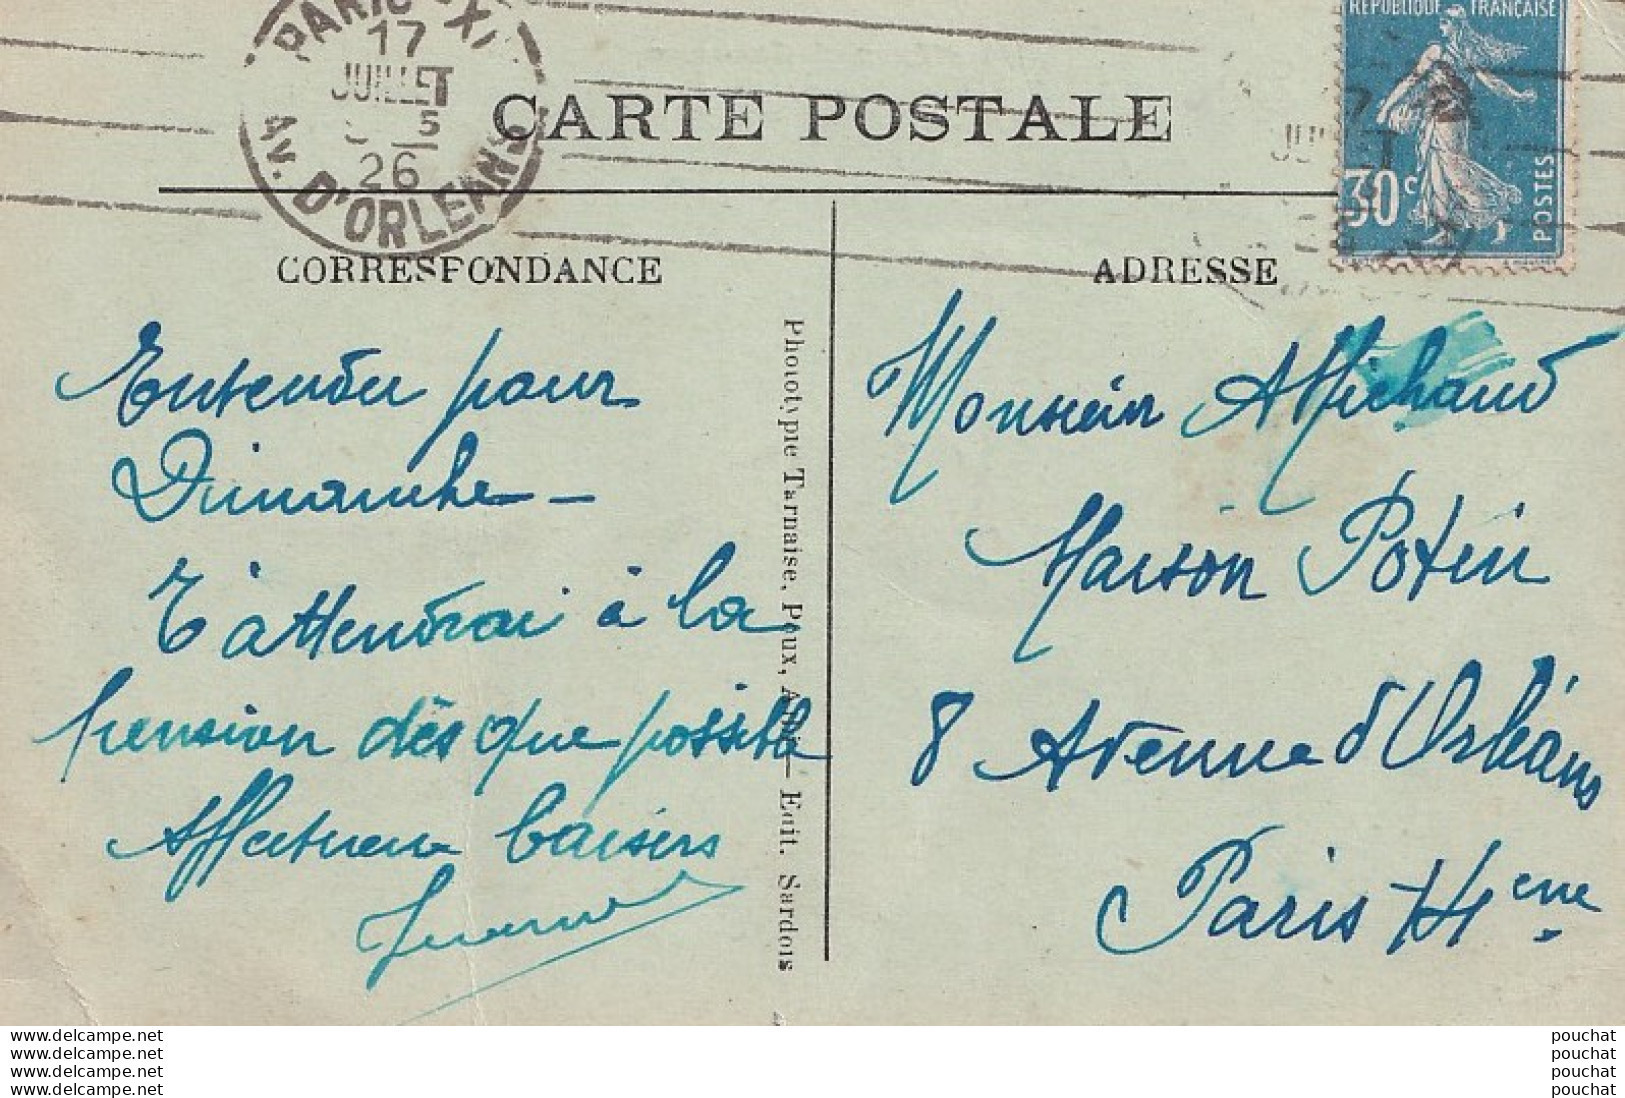 PARIS XI
17
JUILLET
5
26
AV. D'ORLEANS
REPUBLIQUE FRANÇAISE
30c
POSTES
CARTE POSTALE
CORRESPONDANCE
ADRESSE
Entendu pour
Dimanche —
T'attendrai à la
pension dès que possible
Affectueux baisers
Monsieur A Michaud
Maison Potin
8 Avenue d'Orléans
Paris 14eme
Phototypie Tarnaise, Poux, Albi — Edit. Sardois
delcampe.net
delcampe.net
delcampe.net
delcampe.net
pouchat
pouchat
pouchat
pouchat